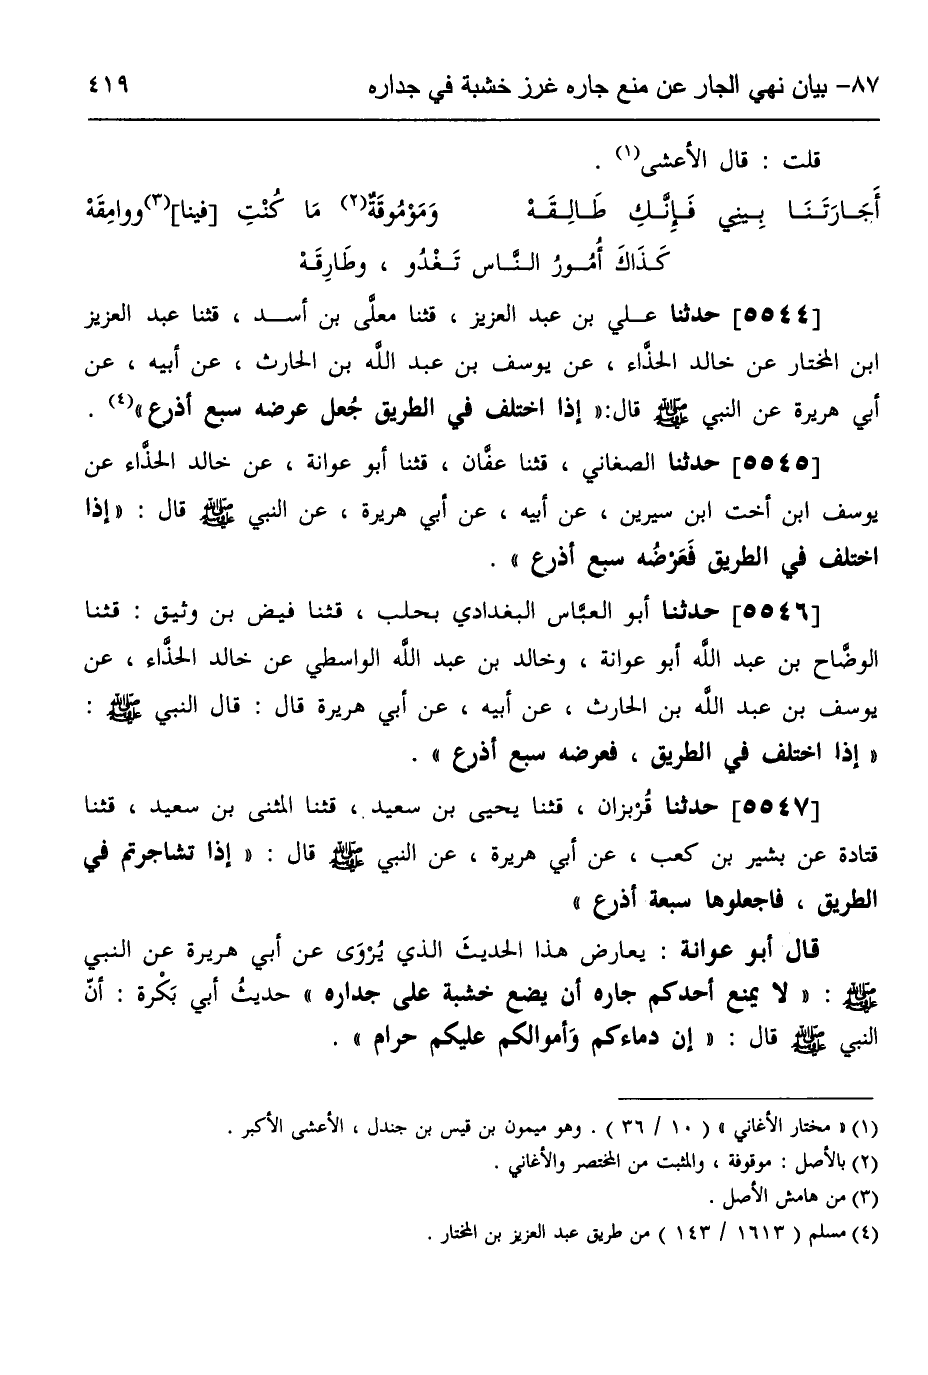 ٨٧- بيان نهي الجار عن منع جاره غرز خشبة في جداره ٤١٩
قلت : قال الأعشى(١) .
أَجَـارَتَـنَـا بِـيـنِي فَـإِنَّـكِ طَـالِـقَـهْ وَمَوْمُوقَةٌ(٢) مَا كُنْتِ [فينا](٣)ووامِقَهْ
كَـذَاكَ أُمُـورُ الـنَّـاس تَـغْـدُو ، وطَارِقَـهْ
[٥٥٤٤] حدثنا عـلـي بن عبد العزيز ، قثنا معلَّى بن أسـد ، قثنا عبد العزيز
ابن المختار عن خالد الحذَّاء ، عن يوسف بن عبد اللَّه بن الحارث ، عن أبيه ، عن
أبي هريرة عن النبي ﷺ قال:« إذا اختلف في الطريق جُعل عرضه سبع أذرع»(٤) .
[٥٥٤٥] حدثنا الصغاني ، قثنا عفَّان ، قثنا أبو عوانة ، عن خالد الحذَّاء عن
يوسف ابن أخت ابن سيرين ، عن أبيه ، عن أبي هريرة ، عن النبي ﷺ قال : « إذا
اختلف في الطريق فَعَرْضُه سبع أذرع » .
[٥٥٤٦] حدثنا أبو العبَّاس البغدادي بحلب ، قثنا فيض بن وثيق : قثنا
الوضَّاح بن عبد اللَّه أبو عوانة ، وخالد بن عبد اللَّه الواسطي عن خالد الحذَّاء ، عن
يوسف بن عبد اللَّه بن الحارث ، عن أبيه ، عن أبي هريرة قال : قال النبي ﷺ :
« إذا اختلف في الطريق ، فعرضه سبع أذرع » .
[٥٥٤٧] حدثنا قُرْبزان ، قثنا يحيى بن سعيد ، قثنا المثنى بن سعيد ، قثنا
قتادة عن بشير بن كعب ، عن أبي هريرة ، عن النبي ﷺ قال : « إذا تشاجرتم في
الطريق ، فاجعلوها سبعة أذرع »
قال أبو عوانة : يعارض هذا الحديثَ الذي يُرْوَى عن أبي هريرة عن النبي
ﷺ : « لا يمنع أحدكم جاره أن يضع خشبة على جداره » حديثُ أبي بَكْرة : أنّ
النبي ﷺ قال : « إن دماءكم وَأموالكم عليكم حرام » .
(١) « مختار الأغاني » ( ١٠ / ٣٦ ) . وهو ميمون بن قيس بن جندل ، الأعشى الأكبر .
(٢) بالأصل : موقوفة ، والمثبت من المختصر والأغاني .
(٣) من هامش الأصل .
(٤) مسلم ( ١٦١٣ / ١٤٣ ) من طريق عبد العزيز بن المختار .